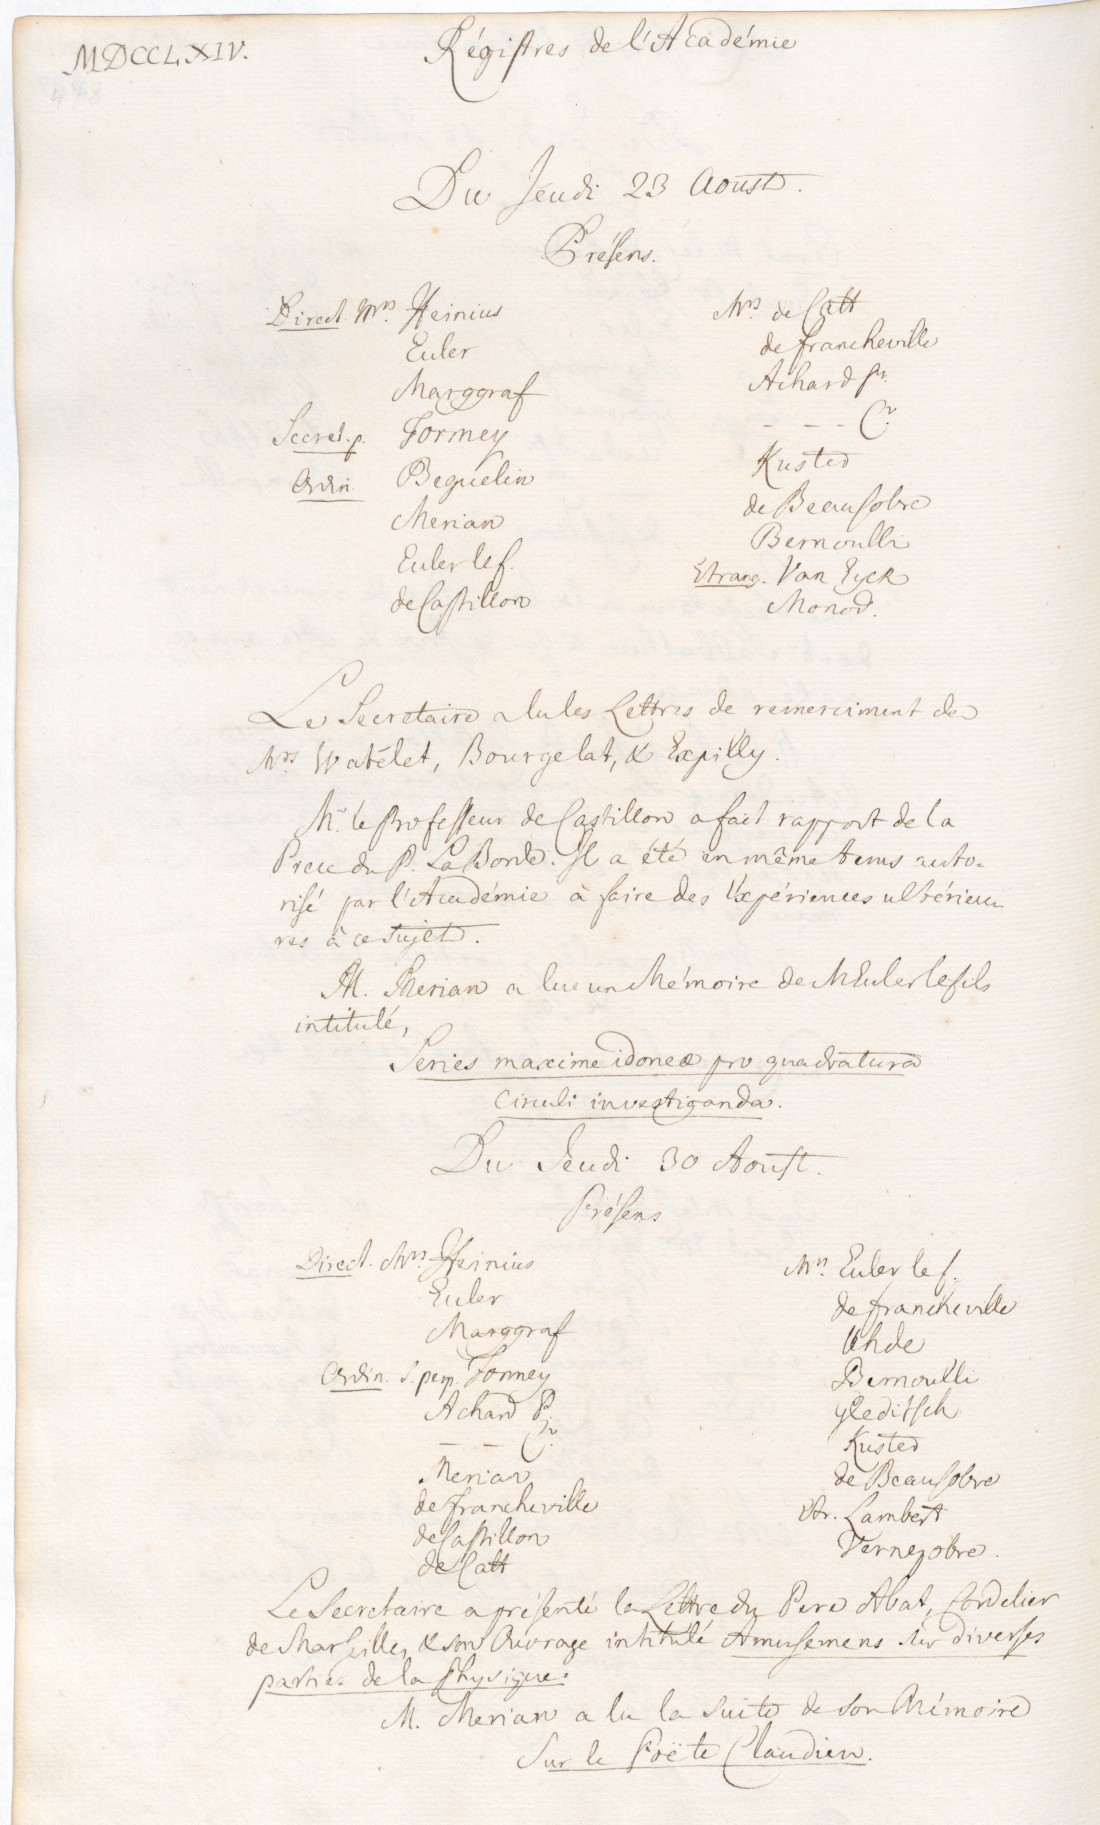 MDCCLXIV.
Régistres de l'Académie
Du Jeudi 23 Aoust.
Présens.
Direct. Mrs. Heinius
Euler
Marggraf
Secret. p. Formey
Ordin. Beguelin
Merian
Euler le f.
de Castillon
Mrs. de Catt
de francheville
Achard Pr.
- - - Cr.
Kusted
de Beausobre
Bernoulli
Etrang. Van Eyck
Monod.
Le Secretaire a lu les Lettres de remerciment de
Mrs. Watelet, Bourgelat, & Expilly.
M. le Professeur de Castillon a fait rapport de la
du P. La Borde. Il a été en même tems auto-
risé par l'Académie à faire des Expériences ultérieu
res à ce sujet.
M. Merian a lu un Mémoire de M Euler le fils
intitulé,
Series maxime idoneæ pro quadratura
Circuli investiganda.
Du Jeudi 30 Aoust.
Présens
Direct. Mrs. Heinius
Euler
Marggraf
Ordin. S. perp. Formey
Achard P.
- - Cr.
Merian
de francheville
de Castillon
de Catt
Mrs. Euler le f.
de francheville
Uhde
Bernoulli
Gleditsch
Kusted
de Beausobre
Etr. Lambert
Vernezobre.
Le Secretaire a présenté la Lettre du Pere Abat, Cordelier
de Marseille, & son Ouvrage intitulé Amusemens sur diverses
parties de la Physique.
M. Merian a lu la suite de son Mémoire
Sur le Poëte Claudien.